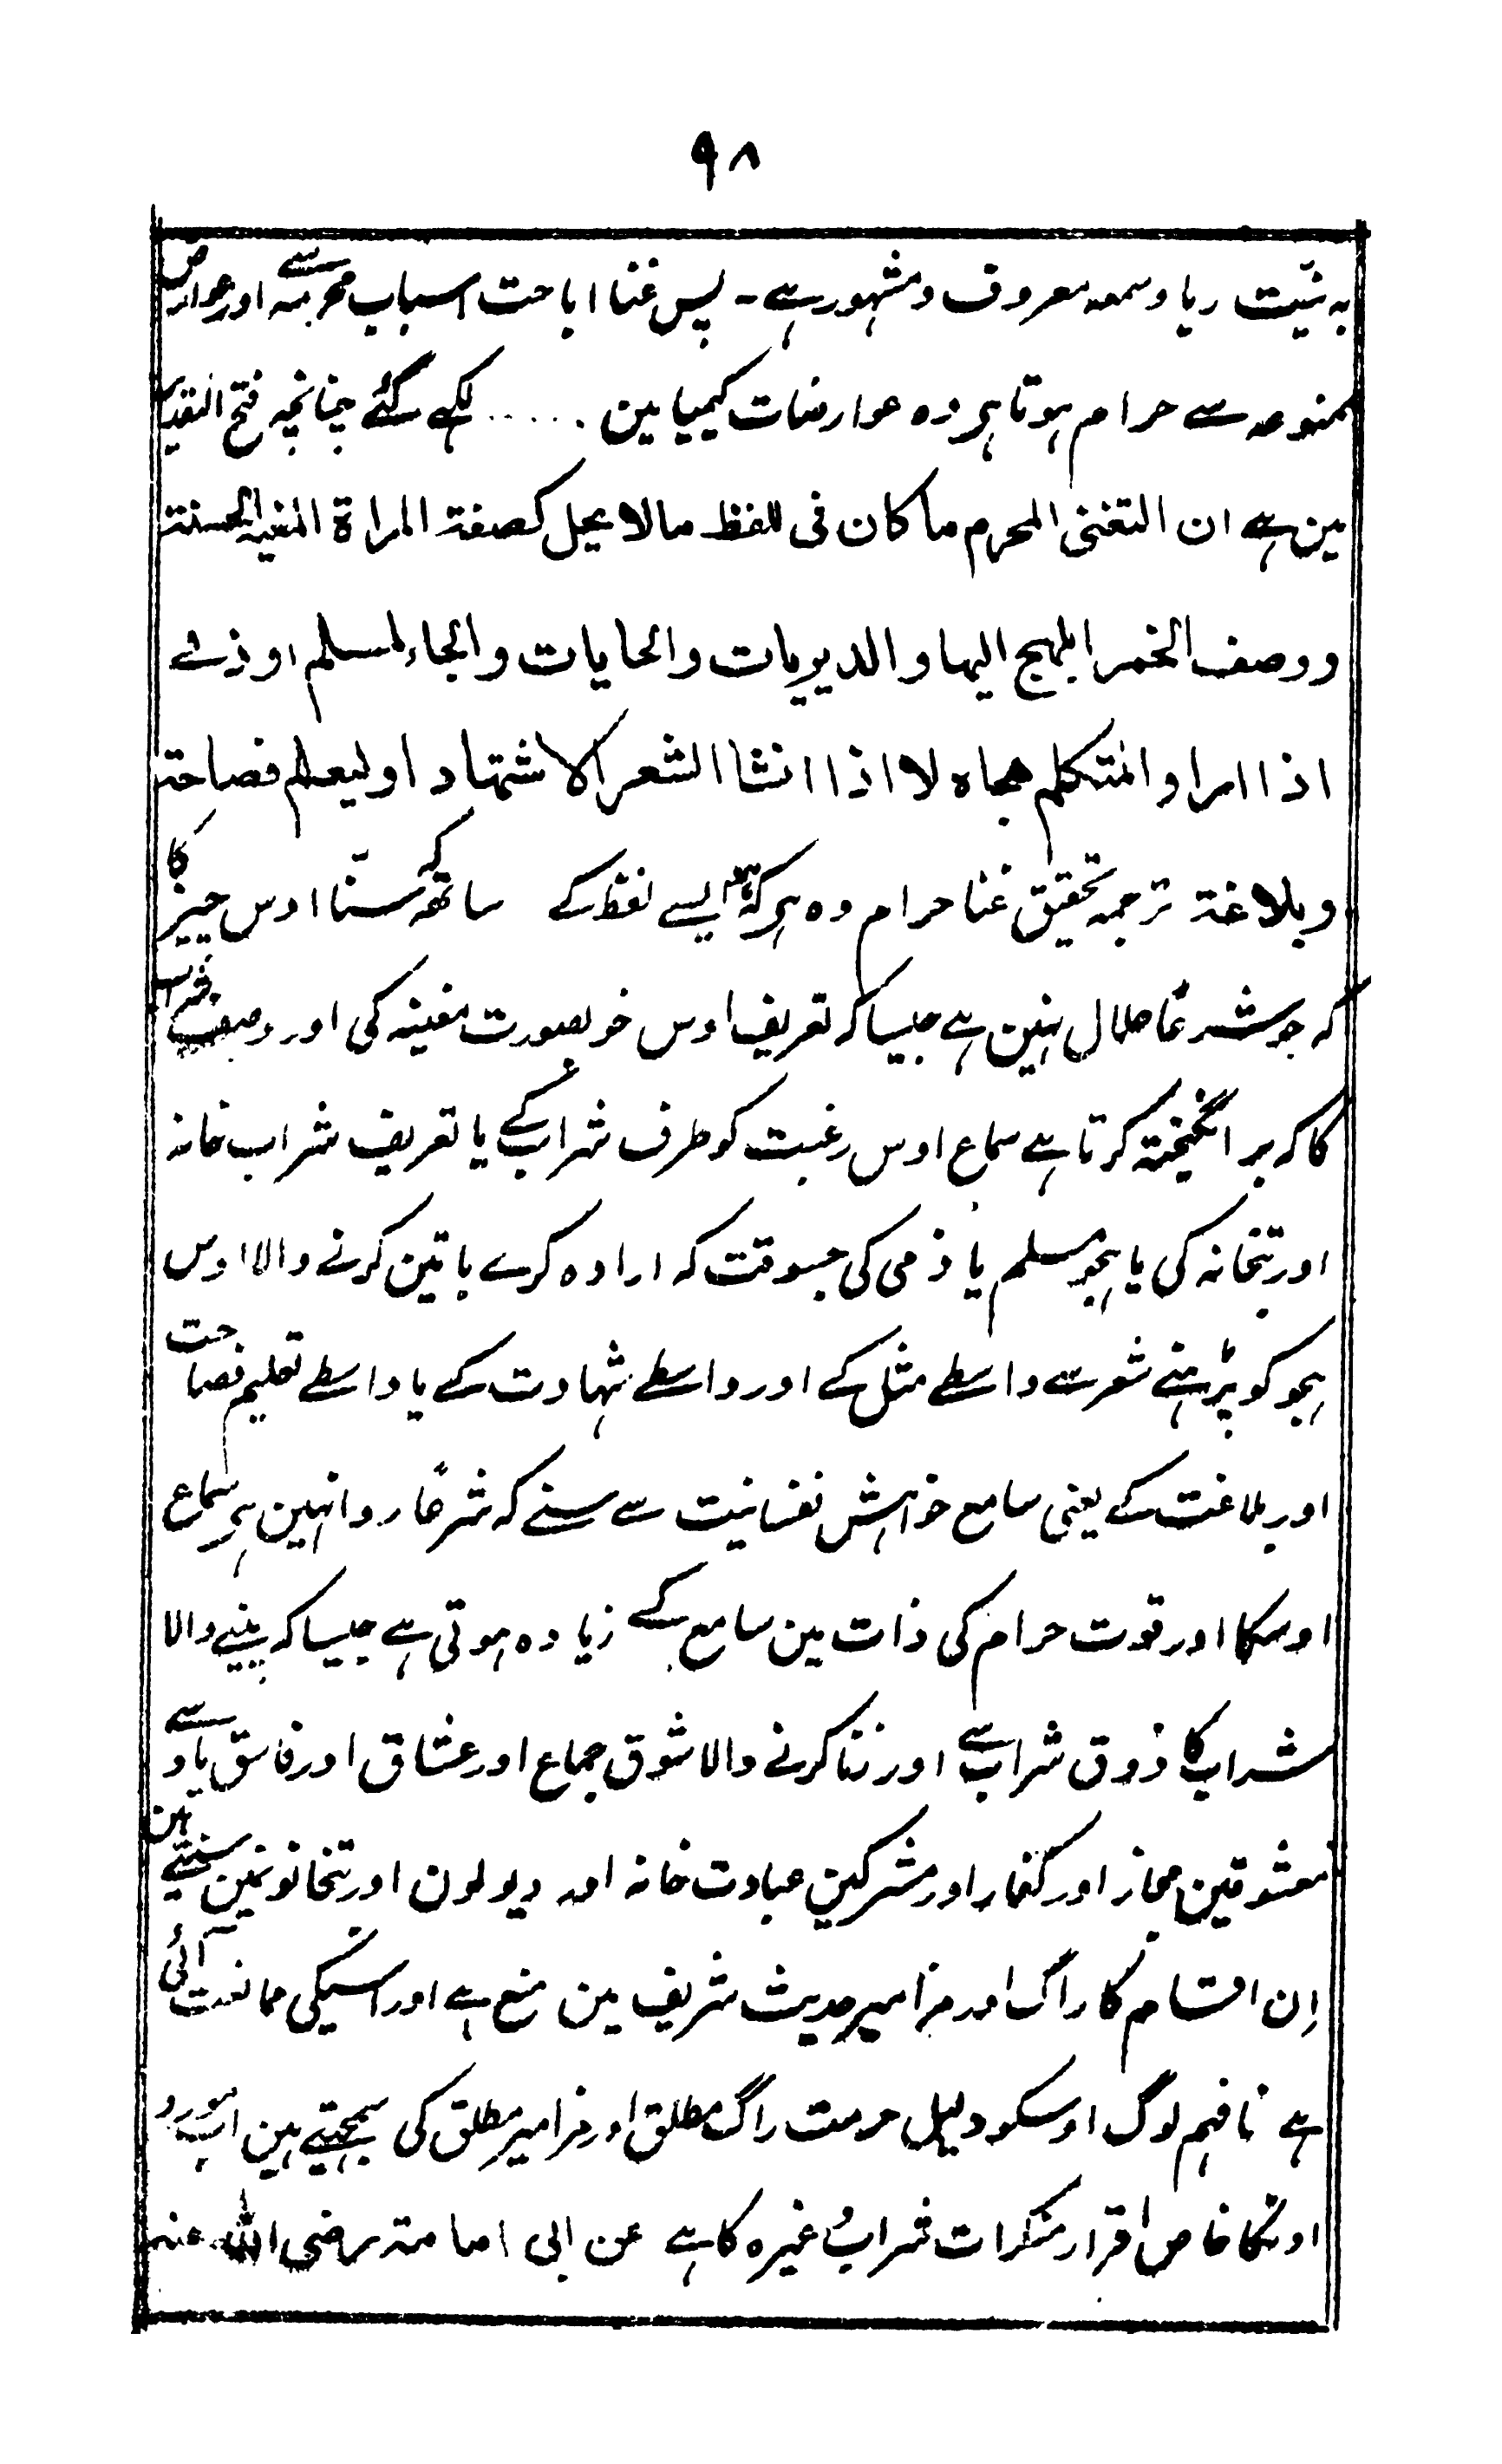 ۹۸
بہ نیّت ریا و سمعہ معروف و مشہور ہے ۔ پس غنا اباحت اسباب محرمہ سے اور عوارض
ممنوعہ سے حرام ہوتا ہی وہ عوارضات کیمیا مین ..... لکہے گئے چنانچہ فتح القدیر
مین ہے ان التغنی المحرم ما کان فی للفظ مالا یحل کصفة المراة المغنیہ الحسنة
ووصف الخمر المہیج الیہا والدیریات والحایات والہجاء لمسلم او ذمے
اذا اراد المتکلم ہجاہ لا اذا انشا الشعر الاشتہاد او لیعلم فصاحتہ
وبلاغة ترجمہ تحقیق غنا حرام وہ ہی کہ ایسے لفظ کے ساتھ کہ سننا اوس چیز کا
کہ جو شرعًا حلال نہین ہے جیسا کہ تعریف اوس خوبصورت مغینہ کی اور وصف شراب
کا کہ بر انگیختہ کرتا ہے سماع اوس رغبت کو طرف شراب کے یا تعریف شراب خانہ
اور بتخانہ کی یا ہجو مسلم یا ذمی کی جسوقت کہ ارادہ کرے باتین کرنے والا اوس
ہجو کو پڑہنے شعر سے واسطے مثل کے اور واسطے شہادت کے یا واسطے تعلیم فصاحت
اور بلاغت کے یعنی سامع خواہش نفسانیت سے سنے کہ شرعًا روا نہین ہی سماع
اوسکا اور قوت حرام کی ذات مین سامع کے زیادہ ہوتی ہے جیسا کہ پینے والا
شراب کا ذوق شراب سے اور زنا کرنے والا شوق جماع اور عشاق اور فاسق یاد سے
معشوقین مجاز اور کفار اور مشرکین عبادت خانہ اور دیولون اور بتخانونمین سنتے ہین
اِن اقسام کا راگ اور مزامیر حدیث شریف مین منع ہے اور اسیکی ممانعت آئی
ہے نا فہم لوگ اوسکو دلیل حرمت راگ مطلق اور مزامیر مطلق کی سمجہتے ہین
اونکا خاص اقرار منکرات شراب وغیرہ کا ہے عن ابی امامة رضی اللہ عنہ